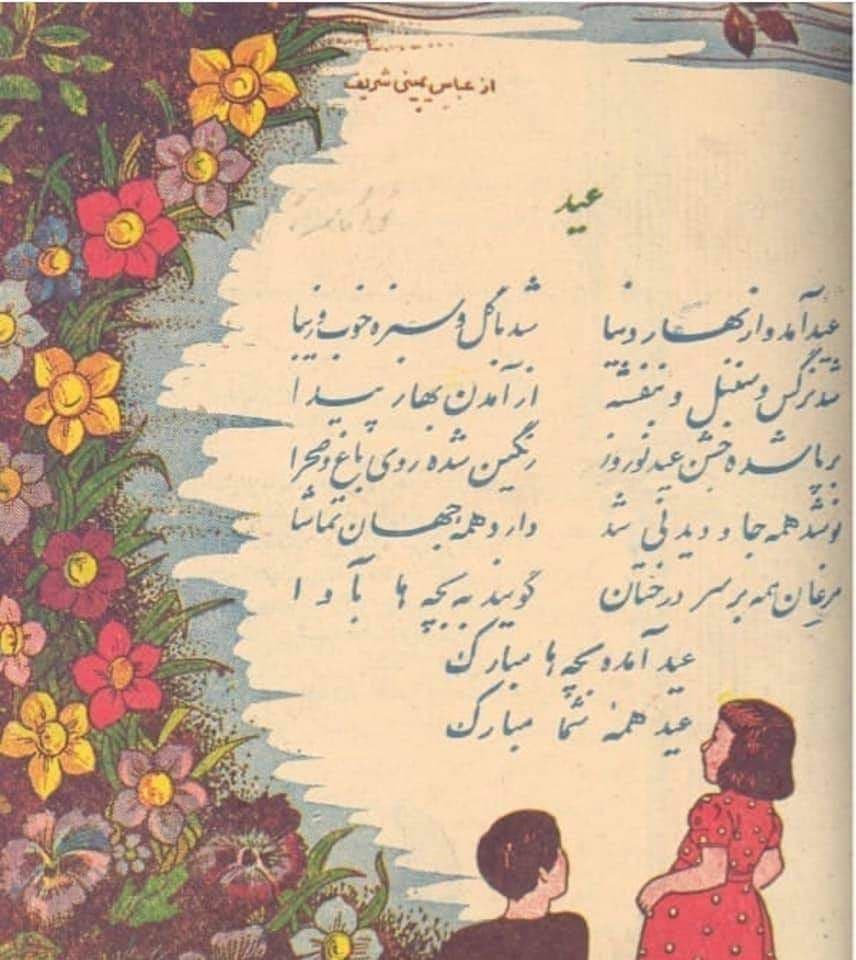 از عباس یمینی شریف
عید
عید آمد و از بهار دنیا شد با گل و سبزه خوب و زیبا
شد نرگس و سنبل و بنفشه از آمدن بهار پیدا
برپا شده جشن عید نوروز رنگین شده روی باغ و صحرا
نو شد همه جا و دیدنی شد دارد همه جهان تماشا
مرغان همه بر سر درختان گویند به بچه ها بآوا
عید آمده بچه ها مبارک
عید همهٔ شما مبارک